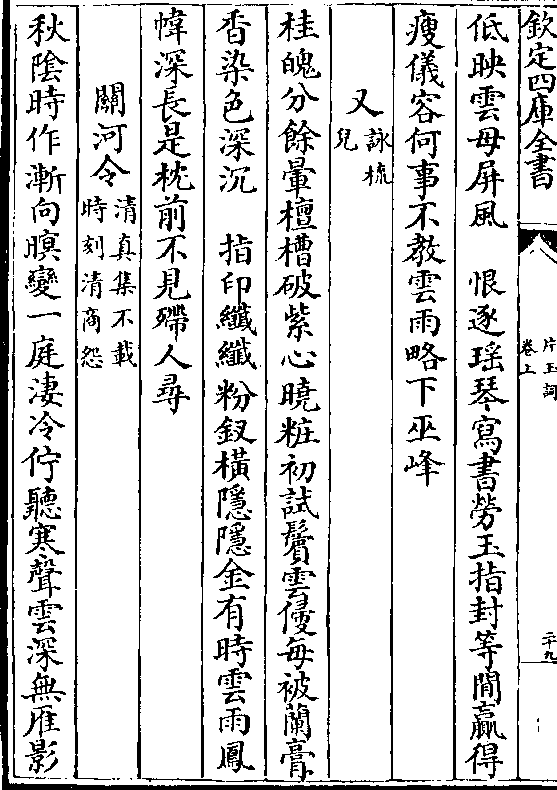 欽定四庫全書
片玉詞
卷上
二十九
低映雲母屏風　恨逐瑤琴寫書勞玉指封等閒贏得
瘦儀容何事不教雲雨略下巫峰
又詠梳兒
桂魄分餘暈檀槽破紫心曉粧初試鬢雲侵每被蘭膏
香染色深沉　指印纖纖粉釵橫隱隱金有時雲雨鳳
幃深長是枕前不見殢人尋
關河令清真集不載時刻清商怨
秋陰時作漸向暝變一庭淒冷佇聽寒聲雲深無雁影